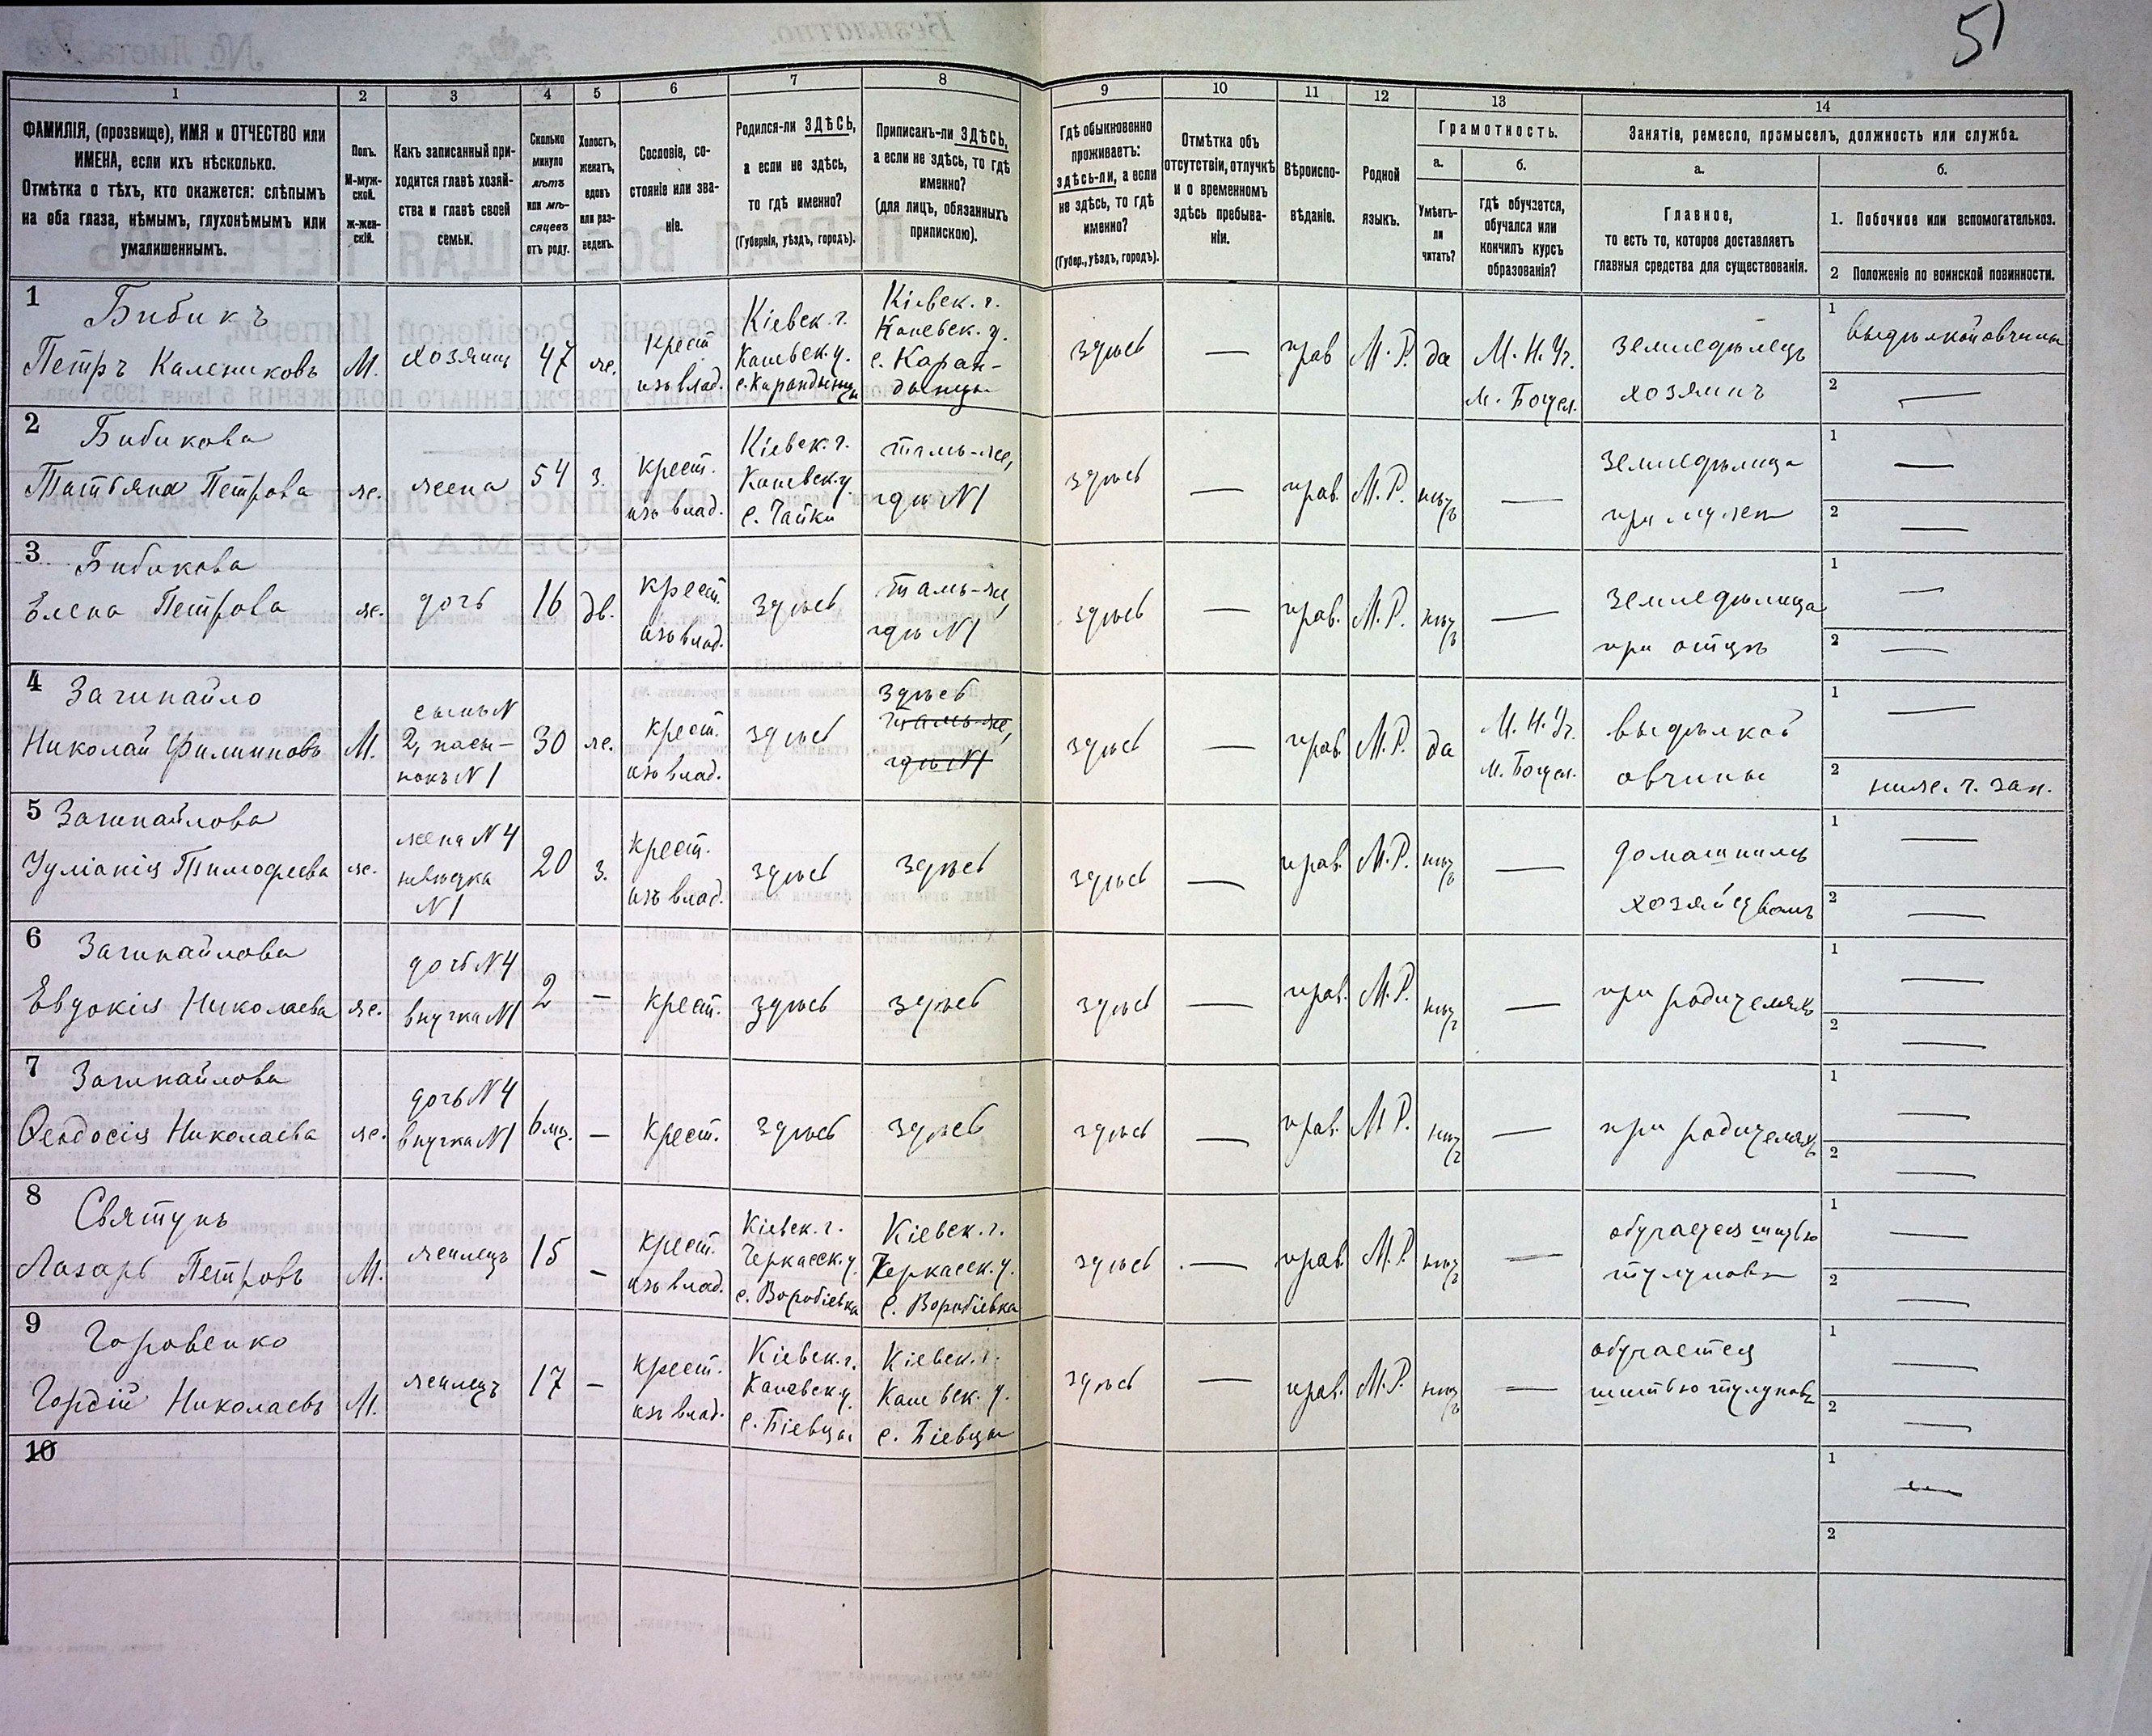 51
1 2 3 4 5 6 7 8 9 10 11 12 13 14
ФАМИЛІЯ, (прозвище), ИМЯ и ОТЧЕСТВО или
ИМЕНА, если ихъ нѣсколько.
Отмѣтка о тѣхъ, кто окажется: слѣпымъ
на оба глаза, нѣмымъ, глухонѣмымъ или
умалишеннымъ.
Полъ.
М-муж-
ской.
Ж-жен-
скій.
Какъ записанный при-
ходится главѣ хозяй-
ства и главѣ своей
семьи.
Сколько
минуло
лѣтъ
или мѣ-
сяцевъ
отъ роду.
Холостъ,
женатъ,
вдовъ
или раз-
веденъ.
Сословіе, со-
стояніе или зва-
ніе.
Родился-ли ЗДѢСЬ,
а если не здѣсь,
то гдѣ именно?
(Губернія, уѣздъ, городъ).
Приписанъ-ли ЗДѢСЬ,
а если не здѣсь, то гдѣ
именно?
(для лицъ, обязанныхъ
припискою).
Гдѣ обыкновенно
проживаетъ:
здѣсь-ли, а если
не здѣсь, то гдѣ
именно?
(Губер., уѣздъ, городъ).
Отмѣтка объ
отсутствіи, отлучкѣ
и о временномъ
здѣсь пребыва-
ніи.
Вѣроиспо-
вѣданіе.
Родной
языкъ.
Грамотность.
а.
Умѣетъ-
ли
читать?
б.
гдѣ обучается,
обучался или
кончилъ курсъ
образованія?
Занятіе, ремесло, промыселъ, должность или служба.
а.
Главное,
то есть то, которое доставляетъ
главныя средства для существованія.
б.
1. Побочное или вспомогательное.
2 Положеніе по воинской повинности.
1
Бибикъ
Петръ Калениковъ
М.
хозяинъ
47
же.
крест
изъ влад.
Кіевск. г.
Каневск. у.
с. Карандынцы
Кіевск. г.
Каневск. у.
с. Каран-
дынцы
здѣсь
—
прав
М. Р.
да
М. Н. Уч.
м. Богусл.
земледѣлецъ
хозяинъ
1 выдѣлкой овчины
2 —
2
Бибикова
Татьяна Петрова
же.
жена
54
з.
крест.
изъ влад.
Кіевск. г.
Каневск. у.
с. Чайки
тамъ-же,
гдѣ N1
здѣсь
—
прав.
М. Р.
нѣтъ
—
земледѣлица
при мужѣ
1 —
2 —
3
Бибикова
Елена Петрова
же.
дочь
16
дв.
крест.
изъ влад.
здѣсь
тамъ-же,
гдѣ N1
здѣсь
—
прав.
М. Р.
нѣтъ
—
земледѣлица
при отцѣ
1 —
2 —
4
Загинайло
Николай Филипповъ
М.
сынъ N
2, пасы-
нокъ N1
30
же.
крест.
изъ влад.
здѣсь
здѣсь
тамъ-же,
гдѣ N1
здѣсь
—
прав.
М. Р.
да
М. Н. Уч.
м. Богусл.
выдѣлкой
овчины
1 —
2 ниж. ч. зап.
5
Загинайлова
Уліанія Тимофеева
же.
жена N4
невѣстка
N1
20
з.
крест.
изъ влад.
здѣсь
здѣсь
здѣсь
—
прав.
М. Р.
нѣтъ
—
домашнимъ
хозяйствомъ
1 —
2 —
6
Загинайлова
Евдокія Николаева
же.
дочь N4
внучка N1
2
—
крест.
здѣсь
здѣсь
здѣсь
—
прав.
М. Р.
нѣтъ
—
при родителяхъ
1 —
2 —
7
Загинайлова
Ѳеодосія Николаева
же.
дочь N4
внучка N1
6 мц.
—
крест.
здѣсь
здѣсь
здѣсь
—
прав.
М. Р.
нѣтъ
—
при родителяхъ
1 —
2 —
8
Святунъ
Лазарь Петровъ
М.
жилецъ
15
—
крест.
изъ влад.
Кіевск. г.
Черкасск. у.
с. Воробіевка
Кіевск. г.
Черкасск. у.
с. Воробіевка
здѣсь
—
прав.
М. Р.
нѣтъ
—
обучается шитью
тулуповъ
1 —
2 —
9
Горовенко
Гордій Николаевъ
М.
жилецъ
17
—
крест.
изъ влад.
Кіевск. г.
Каневск. у.
с. Біевцы
Кіевск. г.
Каневск. у.
с. Біевцы
здѣсь
—
прав.
М. Р.
нѣтъ
—
обучается
шитью тулуповъ
1 —
2 —
10
1 —
2